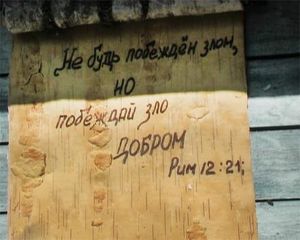 Не будь побеждён злом,
НО
побеждай зло
ДОБРОМ
Рим 12:21;